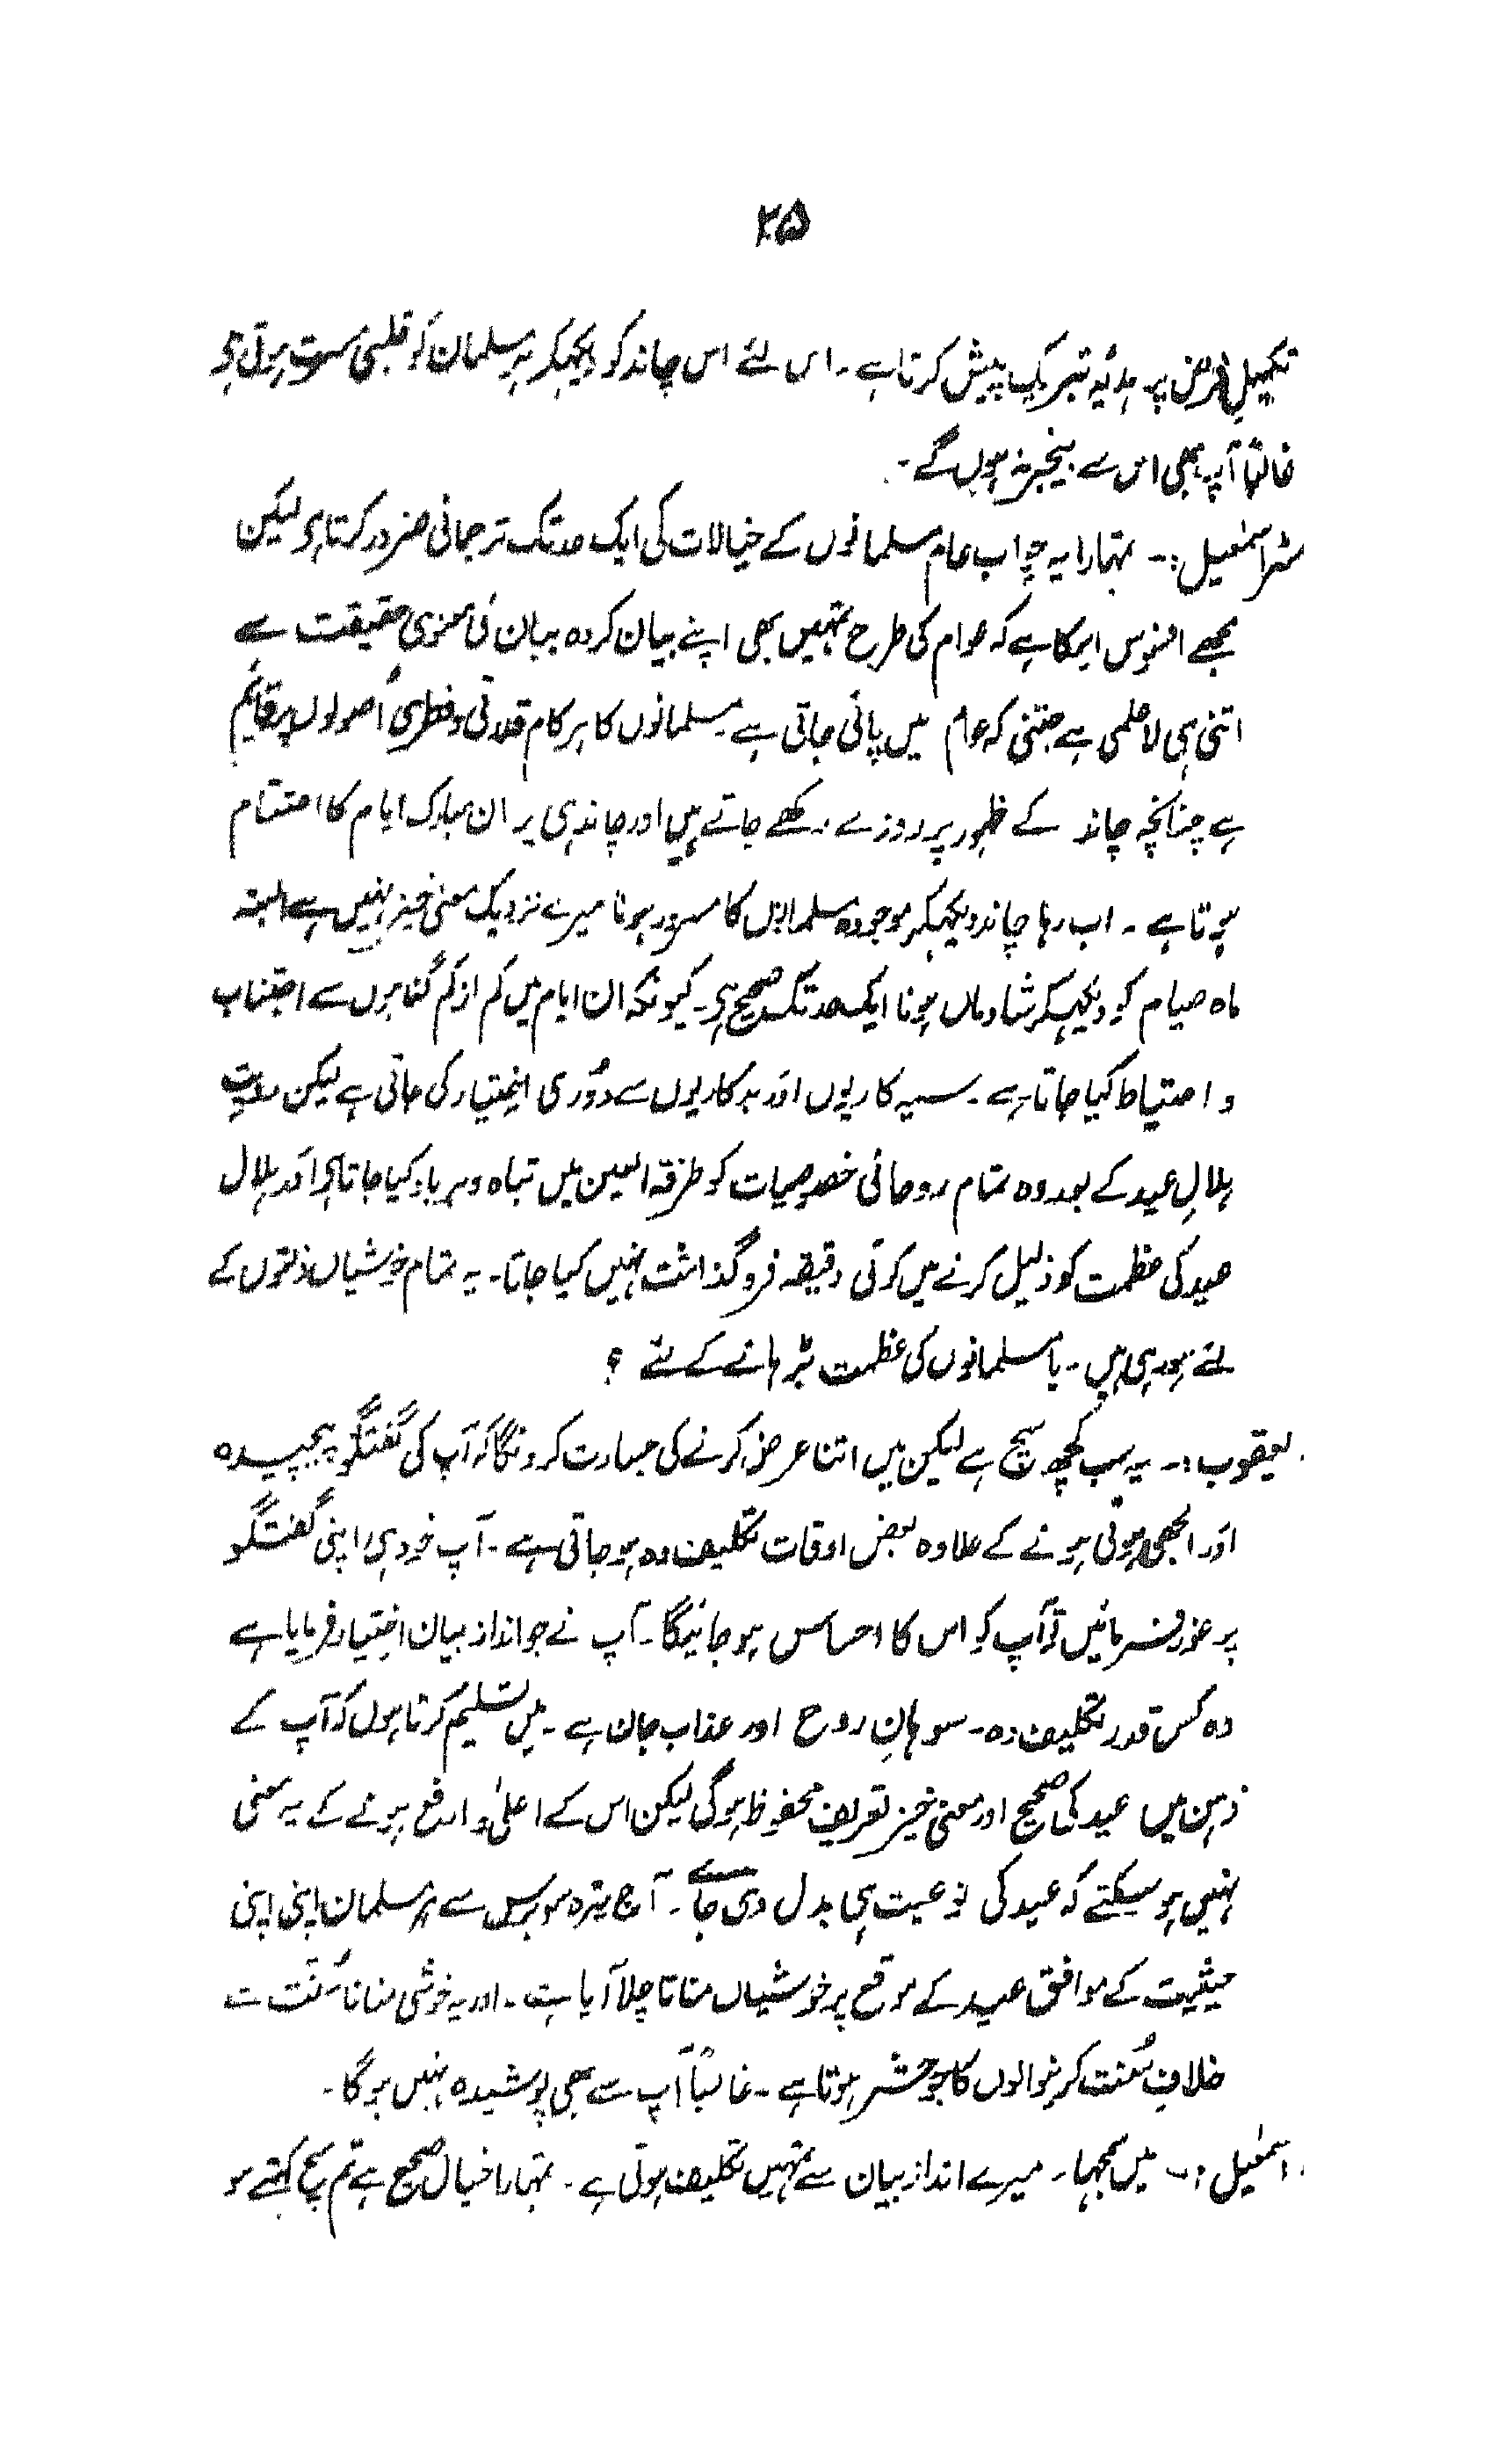 ۲۵
تکمیلِ فرض پر ہدئیہ تبریک پیش کرتا ہے۔ اس لئے اس چاند کو دیکھکر ہر مسلمان کو قلبی مسرت ہوتی ہے
غالباً آپ بھی اس سے بیخبر نہ ہوں گے۔
مسٹر اسمٰعیل :۔ تمہارا یہ جواب عام مسلمانوں کے خیالات کی ایک حد تک ترجمانی ضرور کرتا ہے لیکن
مجھے افسوس اسکا ہے کہ عوام کی طرح تمہیں بھی اپنے بیان کردہ بیان کی معنوی حقیقت سے
اتنی ہی لاعلمی ہے جتنی کہ عوام میں پائی جاتی ہے۔ مسلمانوں کا ہر کام قدرتی و فطری اُصولوں پر قائم
ہے چنانچہ چاند کے ظہور پر روزے رکھے جاتے ہیں اور چاند ہی پر ان مبارک ایام کا اختتام
ہوتا ہے۔ اب رہا چاند دیکھکر موجودہ مسلمانوں کا مسرور ہونا میرے نزدیک معنی خیز نہیں ہے البتہ
ماہ صیام کو دیکھکر شادماں ہونا ایک حد تک صحیح ہے۔ کیونکہ ان ایام میں کم از کم گناہوں سے اجتناب
و احتیاط کیا جاتا ہے۔ سیہ کاریوں اور بدکاریوں سے دُوری اختیار کی جاتی ہے لیکن رویت
ہلالِ عید کے بعد وہ تمام روحانی خصوصیات کو طرفۃ العین میں تباہ و برباد کیا جاتا ہے اور ہلال
عید کی عظمت کو ذلیل کرنے میں کوئی دقیقہ فروگذاشت نہیں کیا جاتا۔ یہ تمام خوشیاں ذلتوں کے
لئے ہو رہی ہیں۔ یا مسلمانوں کی عظمت بڑہانے کے لئے ؟
یعقوب :۔ یہ سب کچھ سچ ہے لیکن میں اتنا عرض کرنے کی جسارت کرونگا کہ آپ کی گفتگو پیچیدہ
اور الجھی ہوئی ہونے کے علاوہ بعض اوقات تکلیف دہ ہو جاتی ہے۔ آپ خود ہی اپنی گفتگو
پر غور فرمائیں تو آپ کو اس کا احساس ہو جائیگا۔ آپ نے جو انداز بیان اختیار فرمایا ہے
وہ کس قدر تکلیف دہ۔ سوہانِ روح اور عذاب جان ہے۔ میں تسلیم کرتا ہوں کہ آپ کے
ذہن میں عید کی صحیح اور معنی خیز تعریف محفوظ ہوگی لیکن اس کے اعلیٰ و ارفع ہونے کے یہ معنی
نہیں ہو سکتے کہ عید کی نوعیت ہی بدل دی جائے۔ آج تیرہ سو برس سے ہر مسلمان اپنی اپنی
حیثیت کے موافق عید کے موقع پر خوشیاں مناتا چلا آیا ہے۔ اور یہ خوشی منانا سُنت ہے
خلافِ سُنت کرنیوالوں کا جو حشر ہوتا ہے۔ غالباً آپ سے بھی پوشیدہ نہیں ہوگا۔
اسمٰعیل :۔ میں سمجہا۔ میرے انداز بیان سے تمہیں تکلیف ہوتی ہے۔ تمہارا خیال صحیح ہے تم سچ کہتے ہو